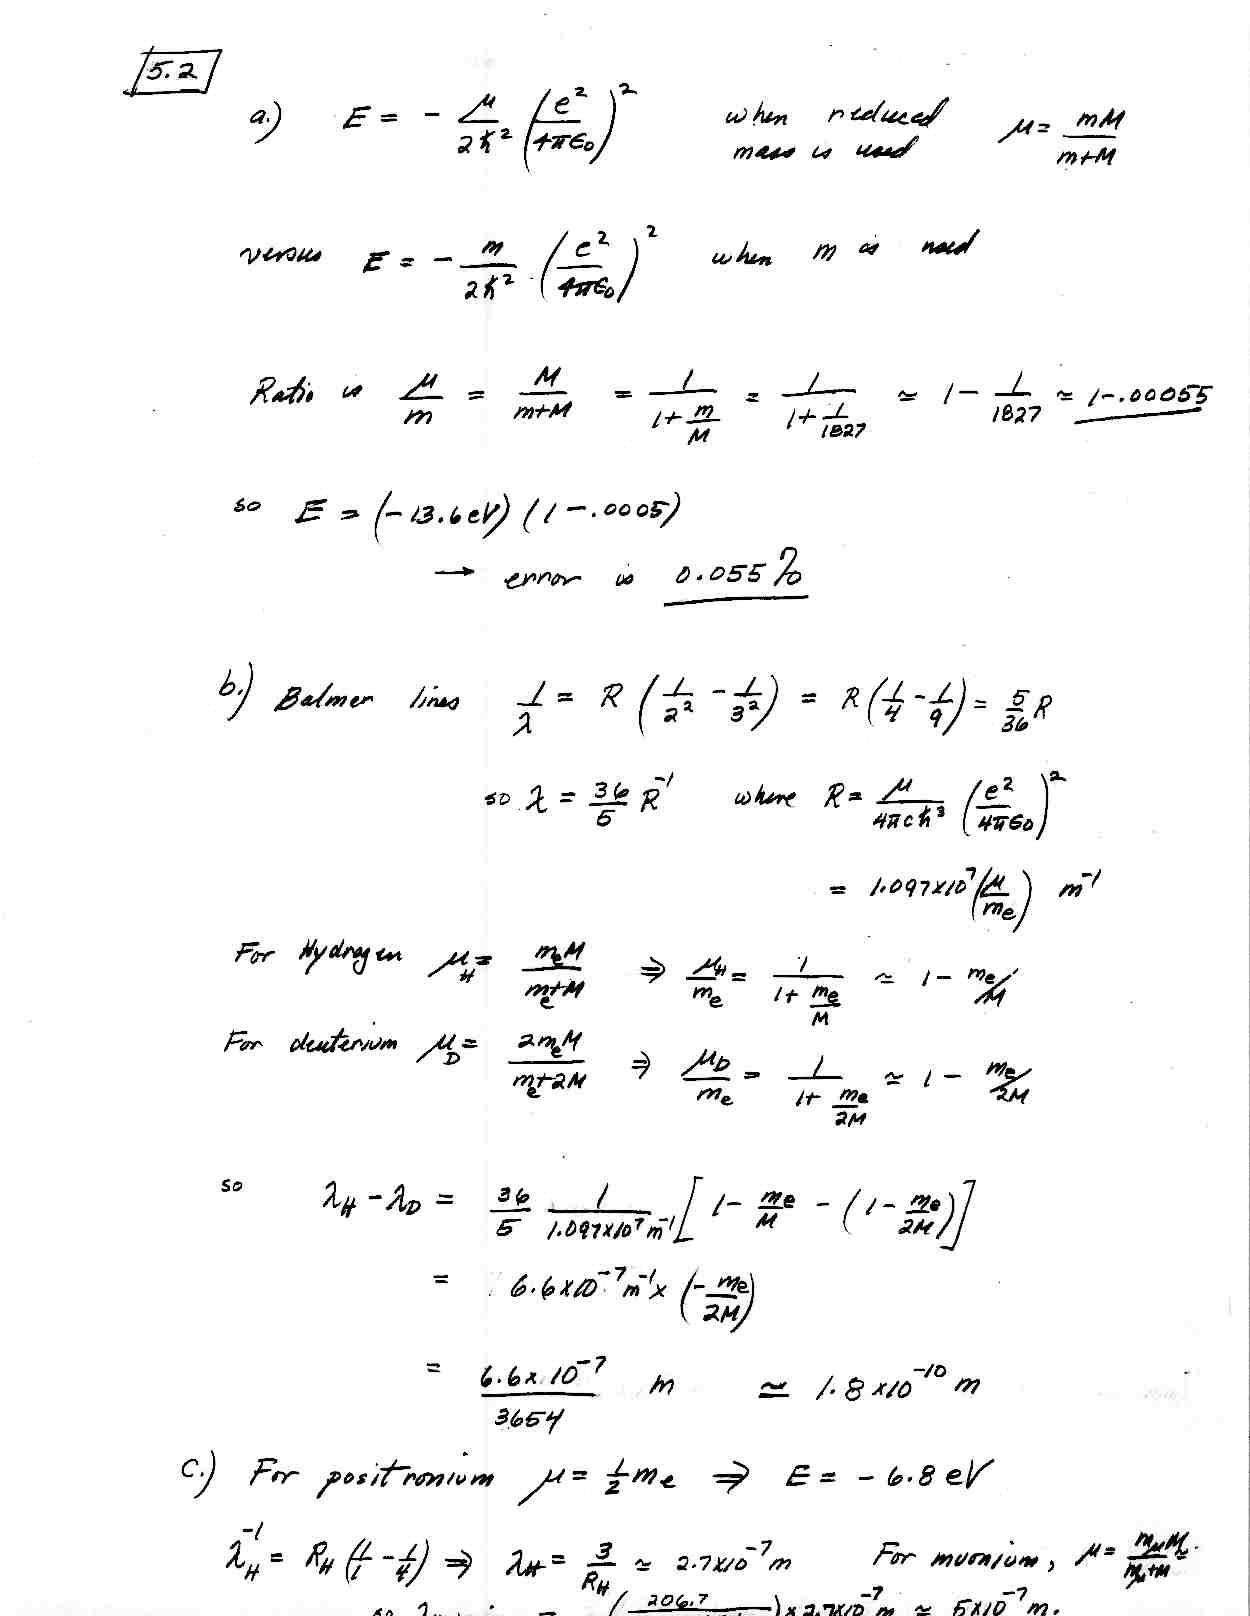 5.2
a.) E = - μ/2ħ² (e²/4πε₀)² when reduced mass is used μ = mM/m+M
versus E = - m/2ħ² · (e²/4πε₀)² when m is used
Ratio is μ/m = M/m+M = 1/1+m/M = 1/1+1/1827 ≃ 1 - 1/1827 ≃ 1-.00055
so E = (-13.6eV) (1-.0005)
→ error is 0.055%
b.) Balmer lines 1/λ = R (1/2² - 1/3²) = R (1/4 - 1/9) = 5/36 R
so λ = 36/5 R⁻¹ where R = μ/4πcħ³ (e²/4πε₀)²
= 1.097×10⁷ (μ/mₑ) m⁻¹
For Hydrogen μ_H = mₑM/mₑ+M ⇒ μ_H/mₑ = 1/1+mₑ/M ≃ 1 - mₑ/M
For deuterium μ_D = 2mₑM/mₑ+2M ⇒ μ_D/mₑ = 1/1+mₑ/2M ≃ 1 - mₑ/2M
so λ_H - λ_D = 36/5 1/1.097×10⁷m⁻¹ [1 - mₑ/M - (1 - mₑ/2M)]
= 6.6×10⁻⁷m⁻¹× (-mₑ/2M)
= 6.6×10⁻⁷/3654 m ≃ 1.8×10⁻¹⁰ m
c.) For positronium μ = 1/2 mₑ ⇒ E = -6.8 eV
λ_H⁻¹ = R_H (1/1 - 1/4) ⇒ λ_H = 3/R_H ≃ 2.7×10⁻⁷m For muonium, μ = m_μM/m_μ+M ≃
206.7 )×2.7×10⁻⁷m ≃ 5×10⁻⁷m.